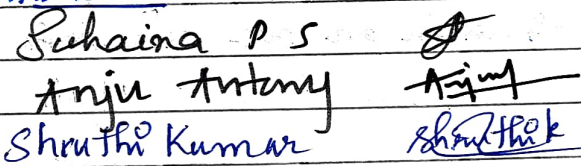 Suhaina P S
Anju Antony Anju
Shruthi Kumar Shruthi k